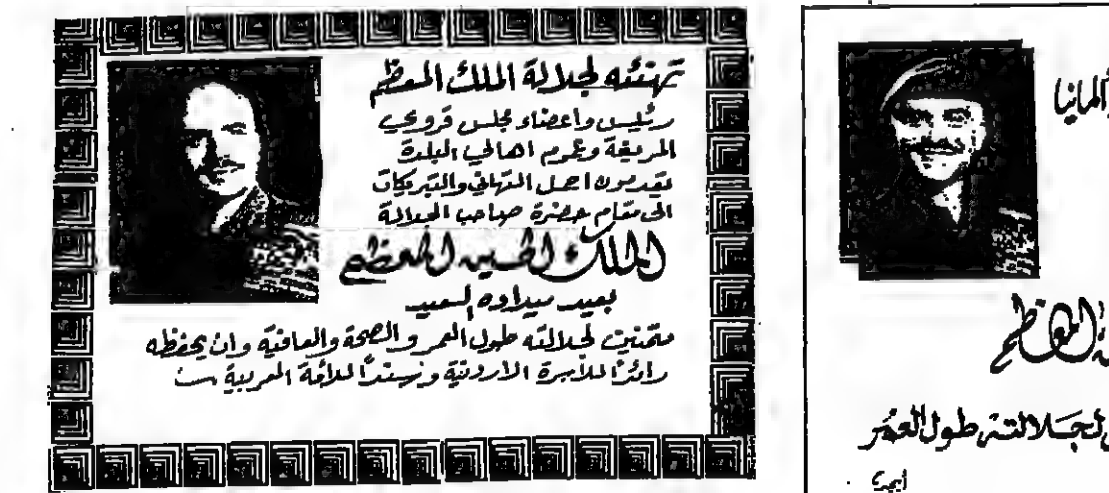 تهنئه لجلالة الملك المعظم
رئيس واعضاء مجلس قروي
المريغة وعموم اهالي البلدة
يقدمون اجمل التهاني والتبريكات
الى مقام حضرة صاحب الجلالة
الملك الحسين المعظم
بعيد ميلاده السعيد
متمنين لجلالته طول العمر والصحة والعافية وان يحفظه
رائداً للأسرة الاردنية وسنداً للأمة العربية
ألمانيا
المعظم
لجلالته طول العمر